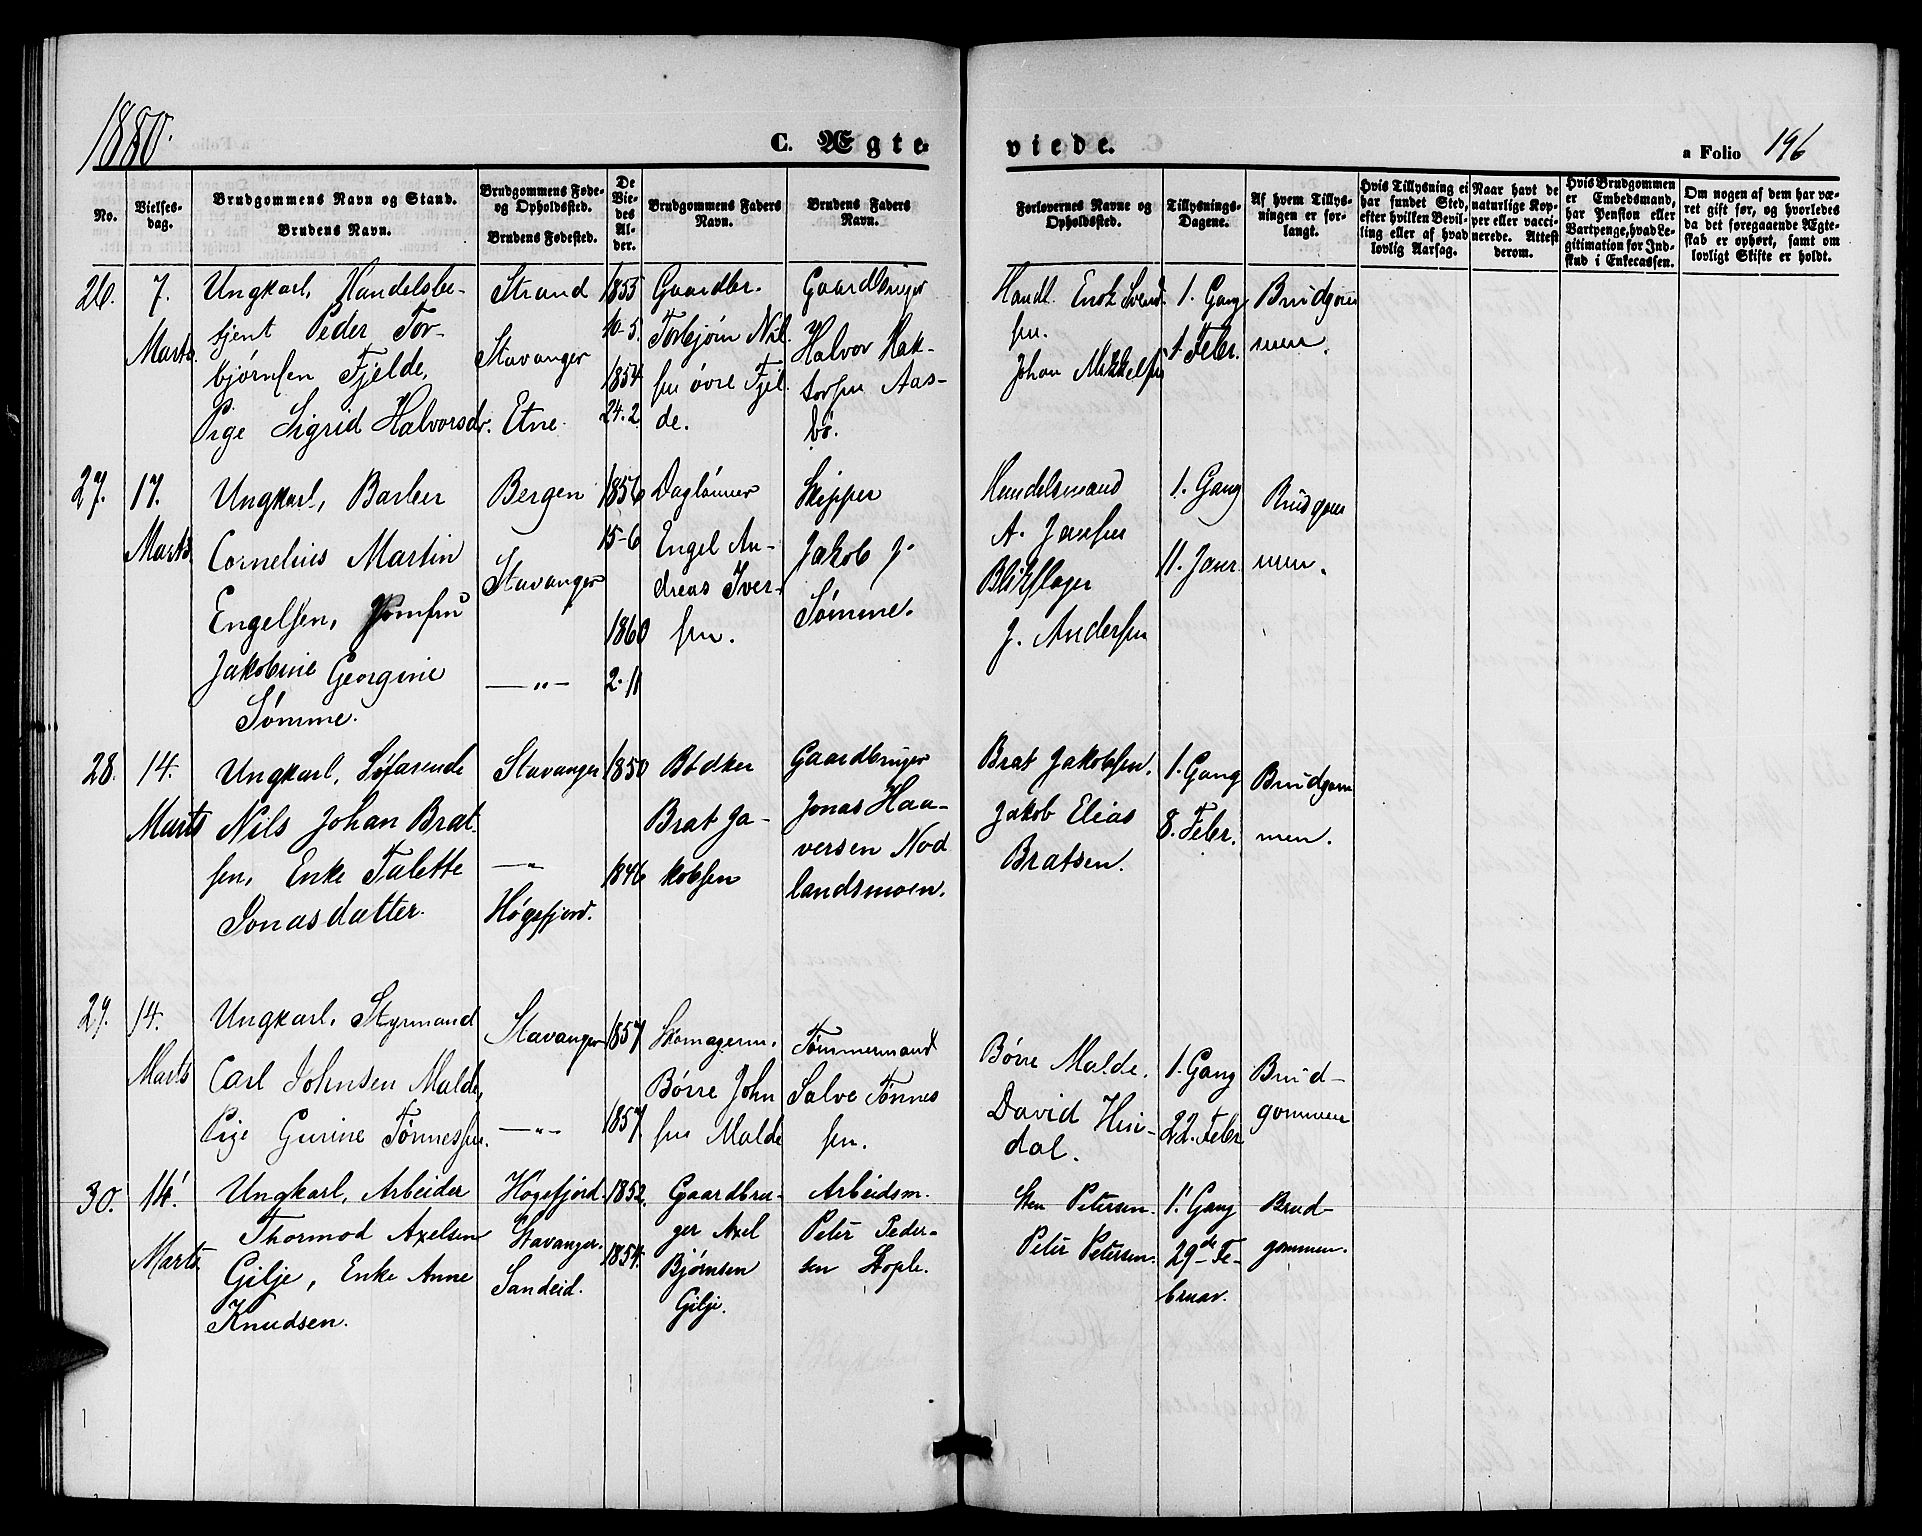 1880.
C. Ægte-
viede.
a Folio 196
No.
Vielses-
dag.
Brudgommens Navn og Stand.
Brudens Navn.
Brudgommens Føde-
og Opholdssted.
Brudens Fødested.
De
Vie-
des
Al-
der.
Brudgommens Faders
Navn.
Brudens Faders
Navn.
Forlovernes Navne og
Opholdssted.
Tillysnings-
Dagene.
Af hvem Tillys-
ningen er for-
langt.
Hvis Tillysning ei
har fundet Sted,
efter hvilken Bevil-
ling eller af hvad
lovlig Aarsag.
Naar havt de
naturlige Kop-
per eller vacci-
nerede. Attest
derom.
Hvis Brudgommen
er Embedsmand,
har Pension eller
Vartpenge, hvad Le-
gitimation for Ind-
skud i Enkecassen.
Om nogen af dem har væ-
ret gift før, og hvorledes
da det foregaaende Ægte-
skab er ophørt, samt om
lovligt Skifte er holdt.
26.
7.
Marts.
Ungkarl, Handelsbe-
tjent Peder Tor-
bjørnsen Fjelde,
Pige Sigrid Halvorsdr.
Strand
Stavanger
Etne.
1855
10-5.
1854
24.2
Gaardbr.
Torbjørn Nil-
sen øvre Fjel-
de.
Gaardbruger
Halvor Hak-
torsen Aas-
bø.
Handl. Enok Svend-
sen.
Johan Mikkelsen
1. Gang
1 Febr.
Brudgom
men.
27.
17.
Marts.
Ungkarl, Barber
Cornelius Martin
Engelsen, Jomfru
Jakobine Georgine
Sømme.
Bergen
Stavanger
—"—
1856
15-6
1860
2-11
Daglønner
Engel An-
dreas Iver-
sen.
Skipper
Jakob J.
Sømme.
Handelsmand
A. Jansen
Blikslager
J. Andersen
1. Gang
11. Janr.
Brudgom
men.
28.
14.
Marts
Ungkarl, Søfarende
Nils Johan Brat-
sen, Enke Talette
Jonasdatter.
Stavanger
—"
Høgsfjord.
1850
1846
Bødker
Brat Ja-
kobsen
Gaardbruger
Jonas Haa-
versen Nod
landsmoen.
Brat Jakobsen.
Jakob Elias
Bratsen.
1. Gang
8. Febr.
Brudgom
men.
29.
14.
Marts
Ungkarl, Styrmand
Carl Johnsen Malde,
Pige Gurine Tønnessen.
Stavanger
—"—
1857
1857.
Skomagerm.
Børre John
sen Malde
Tømmermand
Salve Tønnes
sen.
Børre Malde.
David Hin-
dal.
1. Gang
22. Febr
Brud-
gommen
30.
14.
Marts.
Ungkarl, Arbeider
Thormod Axelsen
Gilje, Enke Anne
Knudsen.
Høgsfjord.
Stavanger.
Sandeid.
1852.
1854.
Gaardbru-
ger Axel
Bjørnsen
Gilje.
Arbeidsm.
Peter Peder-
sen Stople.
Sten Petersen.
Peter Petersen.
1. Gang
29de Fe-
bruar.
Brud-
gommen.